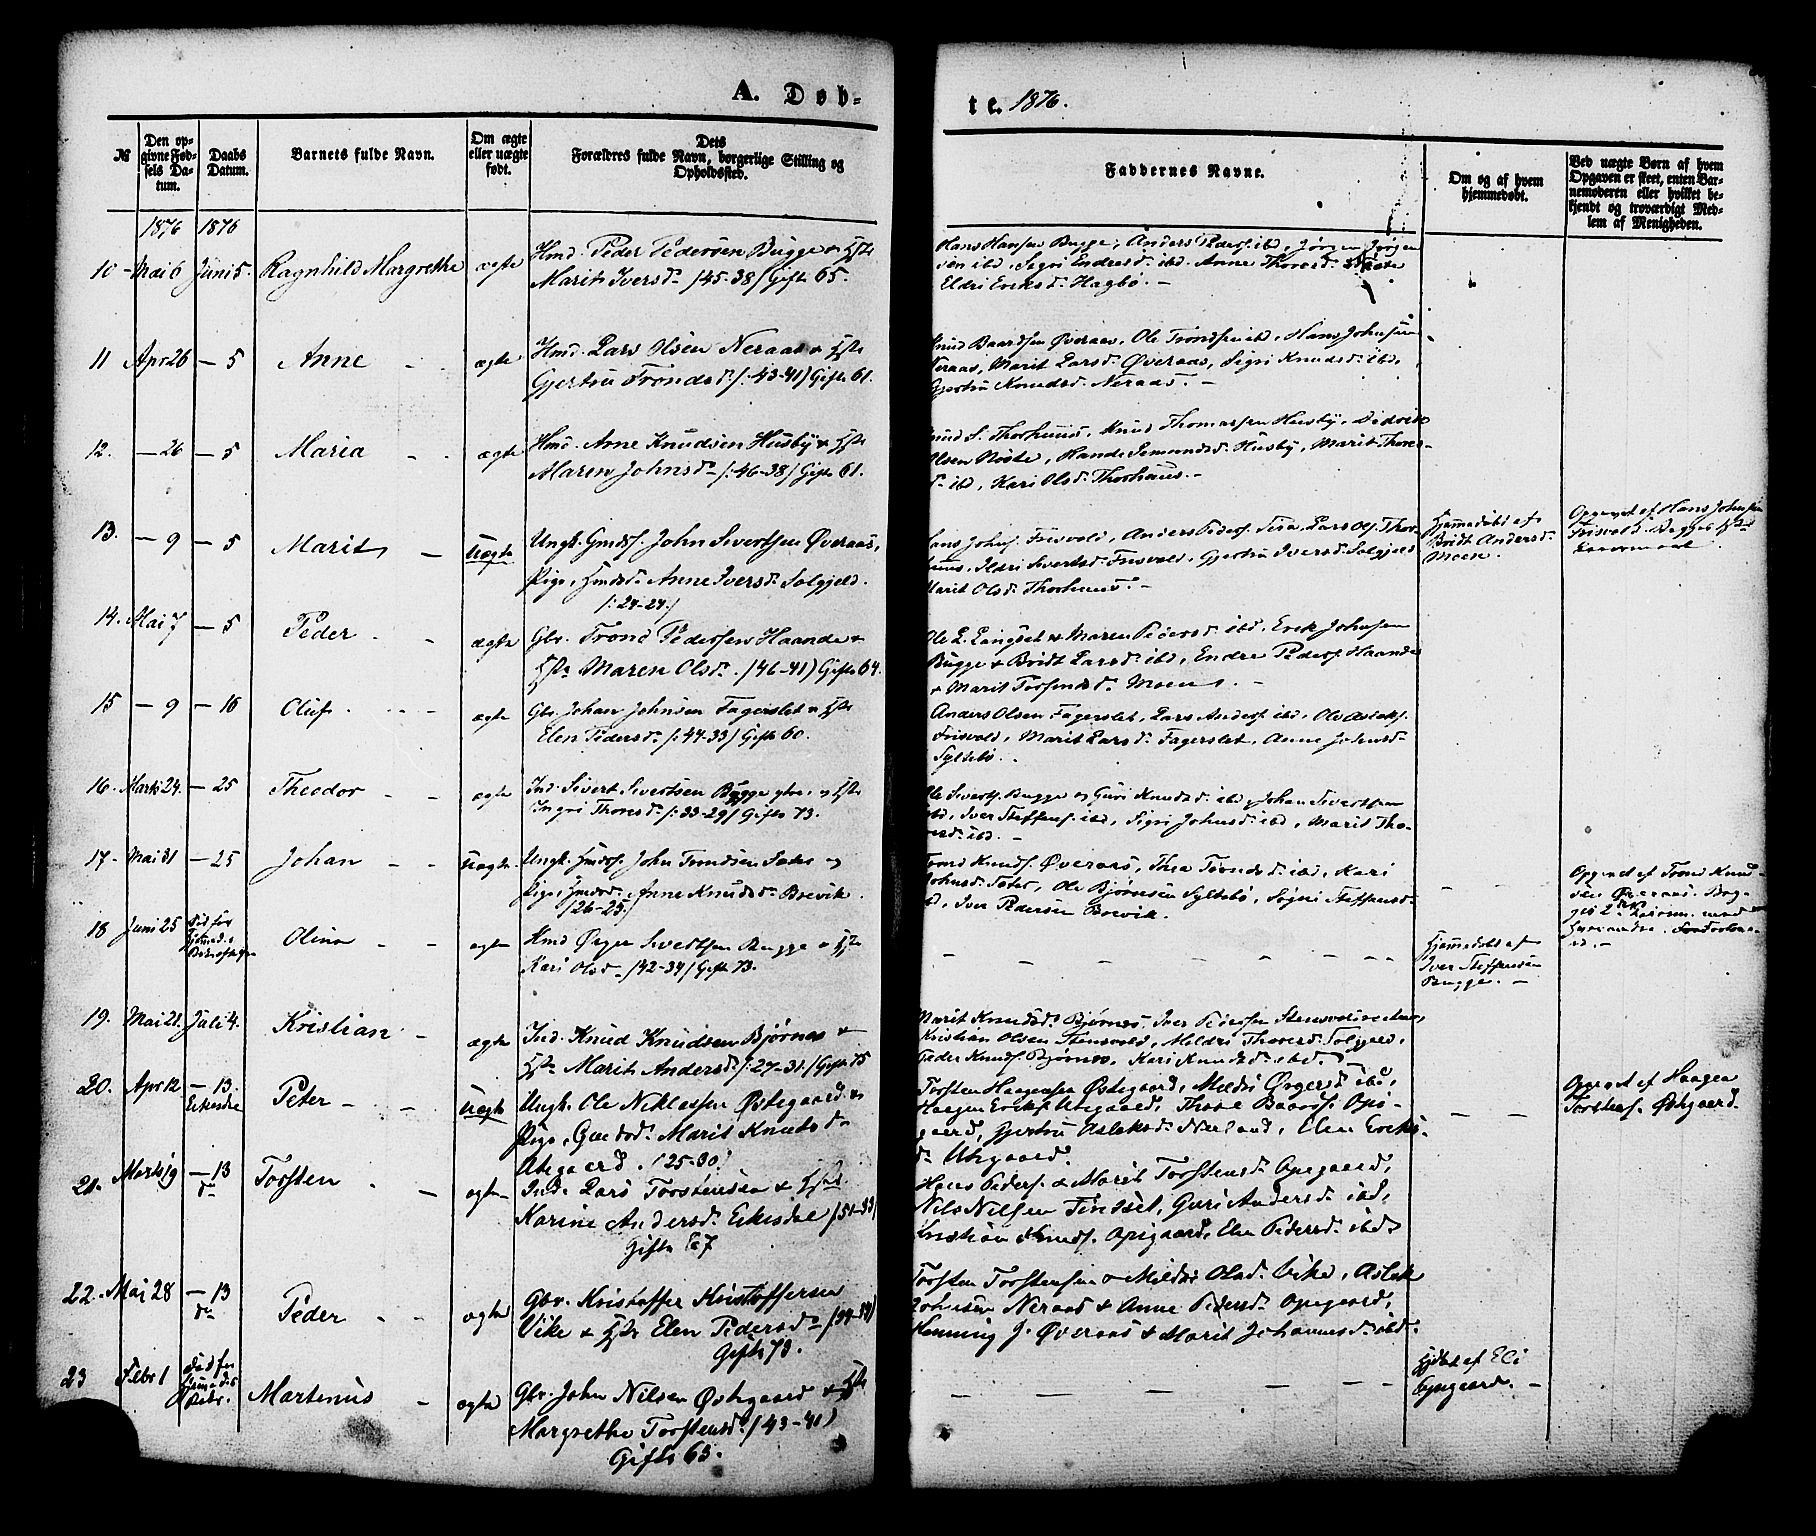 A. Døb-
te. 1876.
№
Den op-
givne Fød-
sels Da-
tum.
Daabs
Datum.
Barnets fulde Navn.
Om ægte
eller uægte
født.
Dets
Forældres fulde Navn, borgerlige Stilling og
Opholdssted.
Faddernes Navne.
Om og af hvem
hjemmedøbt.
Ved uægte Børn af hvem
Opgaven er skeet, enten Bar-
nemoderen eller hvilket be-
kjendt og troværdigt Med-
lem af Menigheden.
1876 1876
10 - Mai 6 Juni 5. Ragnhild Margrethe ægte
Hmd. Peder Pedersen Bugge & Hst.
Marit Iversd. /45-38/ Gift 65.
Hans Hansen Bugge, Anders Peders. ibd, Jørgen Jørgen
sen ibd, Sigri Endresd. ibd. Anne Thoresd.
Eldri Eriksd. Hagbø. -
11 Apr 26 - 5 Anne ægte
Hmd. Lars Olsen Neraas & Hst.
Gjertru Trondsd. /: 43-41/ Gift 61.
Knud Baardsen Øveraas, Ole Trondsen ibd, Hans Johnsen
Neraas, Marit Larsd. Øveraas, Sigri Knudsd. ibd,
Gjertru Knudsd. Neraas. -
12. - 26 - 5 Maria ægte
Hmd. Arne Knudsen Husby & Hst.
Maren Johnsd. /: 46-38/ Gift 61.
Knud S. Thorhuus, Knud Thomassen Husby, Didrik
Olsen Nøste, Hande Semundsd. Husby, Marit Thores-
d. ibd, Kari Olsd. Thorhuus. -
13. - 9 - 5 Marit - Uægte
Ungk. Gmdss. John Sivertsen Øveraas,
Pige, Hmdsd. Anne Iversd. Solgjeld.
/: 24-24./
Hans Johns. Frisvold, Anders Peders. Lars Ols. Thor-
huus, Ildri Sivertsd. Frisvold, Gjertru Iversd. Solgjeld
Marit Olsd. Thorhuus. -
Hjemmedøbt af
Bridt Andersd.
Moen.
Opgivet af Hans Johnsen
Frisvold. Begges 1ste
Leiermaal.
14. Mai 7 - 5 Peder - ægte
Gbr. Trond Pedersen Haande &
Hst. Maren Olsd. /46-41/ Gift 64.
Ole L. Langset & Maren Pedersd. ibd. Erik Johnsen
Bugge & Bridt Larsd. ibd, Endre Peders. Haande
& Marit Torfinsd. Moen. -
15 - 9 - 16 Oluf - ægte
Gbr. Johan Johnsen Fagerslet & Hst.
Elen Pedersd. /: 44-33/ Gift 60.
Anders Olsen Fagerslet, Lars Anders. ibd, Ole Aslaks.
Frisvold, Marit Larsd. Fagerslet, Anne Johnsd.
Syltebø.
16. Marts 24. - 25 Theodor - - ægte
Ind. Sivert Sivertsen Bugge & Hst.
Ingri Thoresd. /: 33-29/ Gift 73.
Ole Siverts. Bugge og Guri Knudsd. ibd, Johan Sivertsen
ibd, Iver Steffens. ibd, Sigri Johnsd. ibd, Marit Tho-
resd. ibd. -
17 - Mai 31 - 25 Johan - - Uægte
Ungk. Hmdss. John Trondsen Sæter og
Pige, Hmdsd. Anne Knudsd. Brevik.
/26-25./
Trond Knuds. Øveraas, Thea Trondsd. ibd, Kari
Johnsd. Sæter, Ole Bjørnsen Syltebø, Sigri Steffens-
d, Iver Pedersen Brevik.
Opgivet af Trond Knud-
sen Øveraas. Beg-
ges 2det Leierm. med
hverandre.
18 Juni 25 Død før
Olina - - ægte
Hmd Ørger Sivertsen Bugge & Hst
Kari Olsd. /42-34/ Gift 73.
Hjemmedøbt af
Iver Steffensen
Bugge. -
19. Mai 21. Juli 4. Kristian - ægte
Ind. Knud Knudsen Bjørnes &
Hst. Marit Andersd. /: 27-31./ Gift 75
Marit Knudsd. Bjørnes, Iver Pedersen
Kristian Olsen Stensvold, Mildri Thoresd. Solgjeld,
Peder Knuds. Bjørnes, Kari Knudsd. ibd. -
20. Apr 12 - 13. Eikisdal Peter - - Uægte
Ungk. Ole Niklassen Østegaard &
Pige, Gmdsd. Marit Knutsd.
Utegaard. /25-30/
Torsten Haagensen Østegaard, Mildri Ørgersd. ibd,
Haagen Eriks. Utegaard, Thore Baards. Opi-
gaard, Gjertru Aslaksd. Nerland, Elen Eriks-
d. Utegaard.
Opgivet af Haagen
Torstens. Østegaard.
21. Marts 19 - 13 do Torsten - ægte
Ind. Lars Torstensen & Hst.
Karine Andersd. Eikisdal /51-33/
Gift 67
Hans Peders. & Marit Torstensd. Opegaard,
Nils Nilsen Finset, Guri Andersd. ibd,
Kristian Knuds. Opigaard, Elen Pedersd. ibd.
22. Mai 28 - 13 do Peder - - ægte
Gbr. Kristoffer Kristoffersen
Vike & Hst. Elen Pedersd. /34-34/
Gift 73.
Torsten Torstensen & Mildri Olsd. Vike, Aslak
Johnsen Neraas & Anne Pedersd. Opegaard,
Henning J. Øveraas & Marit Johannesd. ibd.
23 Febr 1 Død før
Martinus - ægte
Gbr. John Nilsen Østegaard & Hst.
Margrethe Torstensd. /43-41/
Gift 63.
Hjdbt af Eli
Opegaard. -